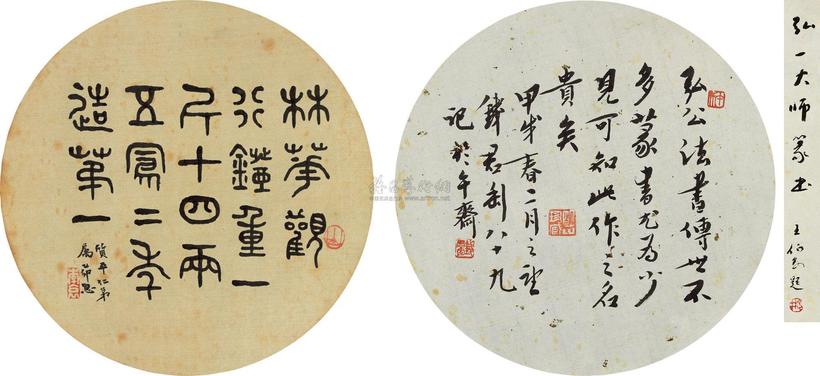 林華觀
行鐙重一
斤十四兩
五鳳二年
造第一
質平仁弟
弘公法書傳世不
多篆書尤為少
見可知此作之名
貴矣
甲戌春二月之望
錢君匋八十九
記於午齋
弘一大師篆書
王伯敏題